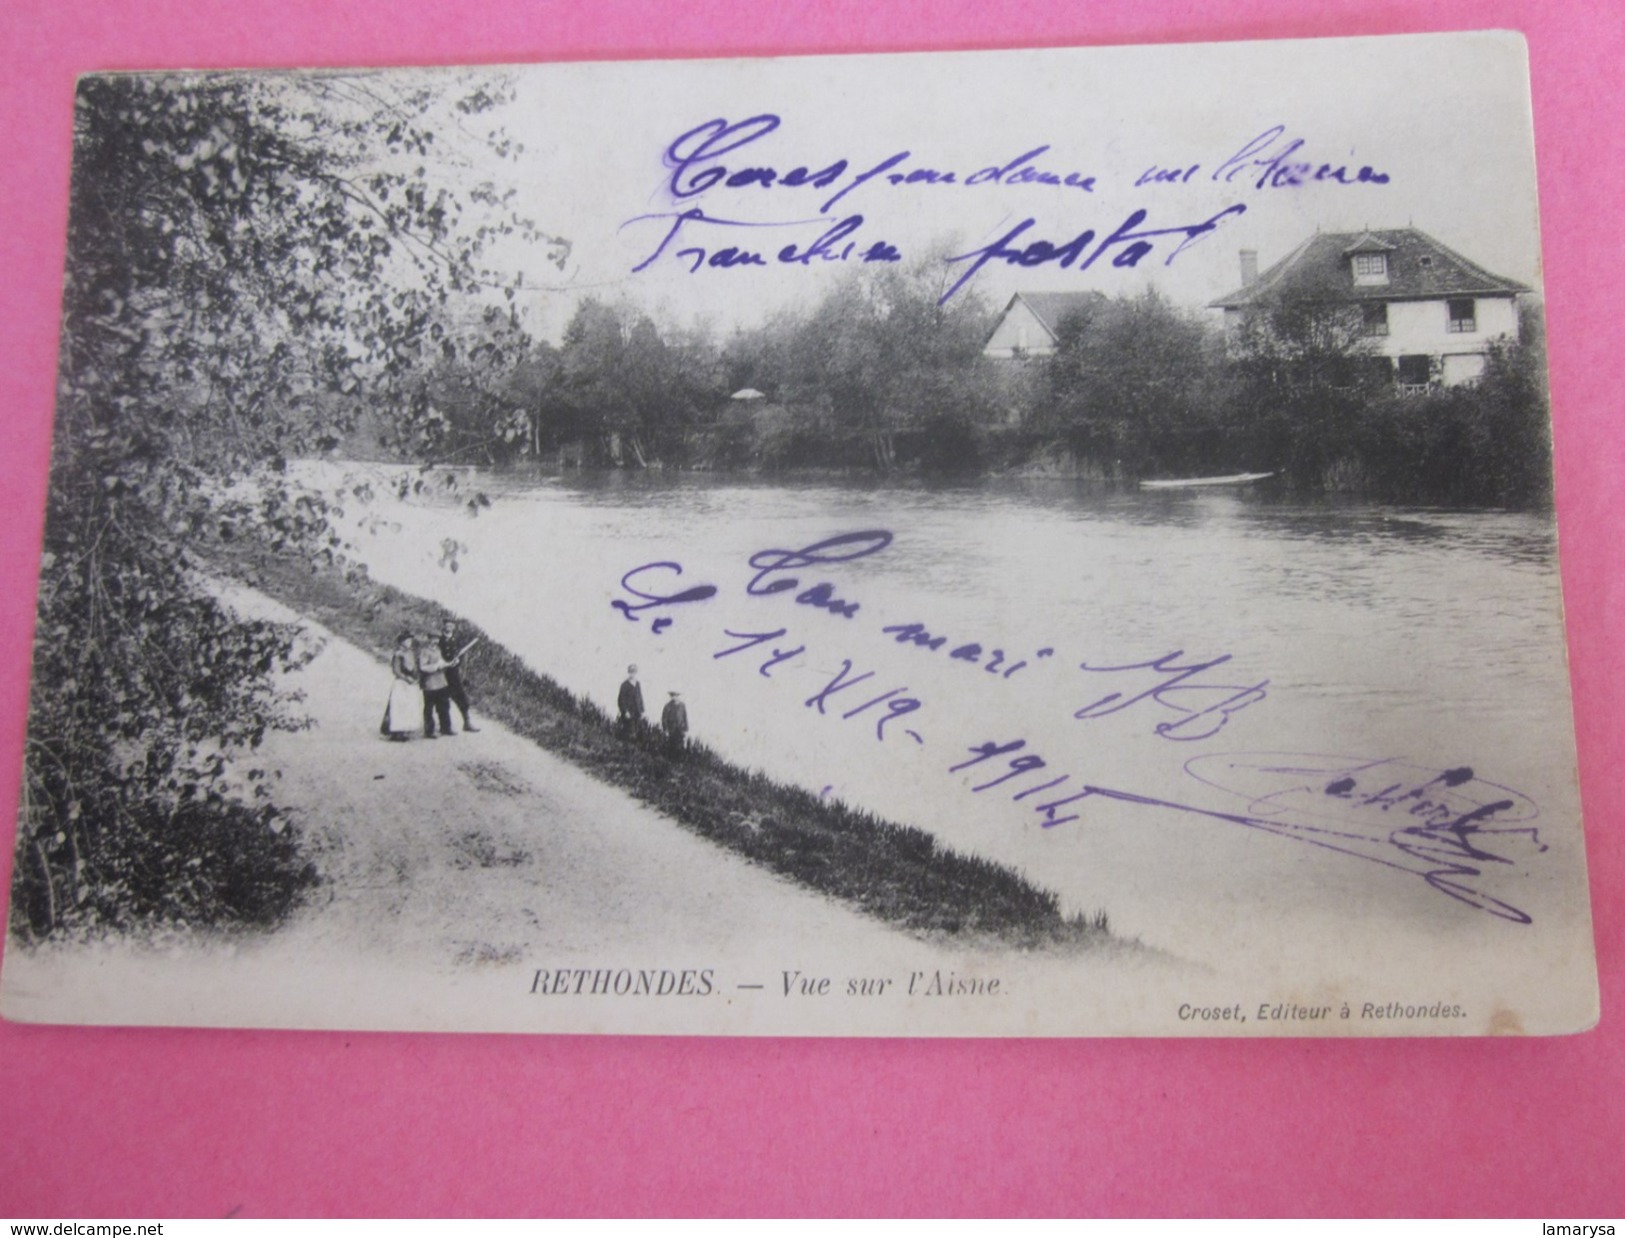 Correspondance militaire
Franchise postal
Ton mari
Le 14 1914
RETHONDES. — Vue sur l'Aisne.
Croset, Editeur à Rethondes.
www.delcampe.net
lamarysa